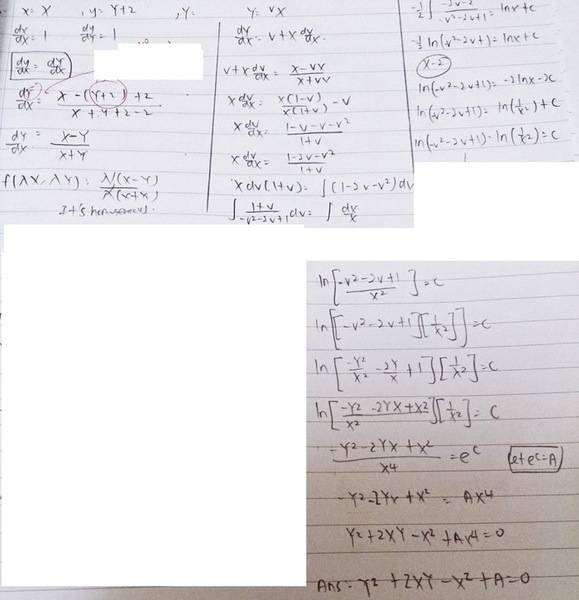 x = X , y = Y+2 , Y =
dx/dX = 1 dy/dY = 1
dy/dx = dY/dX
dY/dX = X - (Y+2) + 2 / X + Y + 2 - 2
dY/dX = X - Y / X + Y
f(λX, λY) = λ(X - Y) / λ(X + Y)
It's homogeneous.
Y = vX
dY/dX = v + X dv/dX
v + X dv/dX = X - vX / X + vX
X dv/dX = X(1-v) / X(1+v) - v
X dv/dX = 1 - v - v - v² / 1+v
X dv/dX = 1 - 2v - v² / 1+v
X dv(1+v) = ∫(1 - 2v - v²) dv
∫ 1+v / -v² - 2v + 1 dv = ∫ dX/X
-1/2 ∫ -2v - 2 / -v² - 2v + 1 = ln x + c
-1/2 ln(-v² - 2v + 1) = ln x + c
x - 2
ln(-v² - 2v + 1) = -2 ln x - 2c
ln(-v² - 2v + 1) = ln(1/x²) + c
ln(-v² - 2v + 1) - ln(1/x²) = c
ln[-v² - 2v + 1 / x²] = c
ln[[-v² - 2v + 1][1/x²]] = c
ln[-Y²/X² - 2Y/X + 1][1/X²] = c
ln[-Y² - 2YX + X² / X²][1/X²] = C
-Y² - 2YX + X² / X4 = e^C let e^C = A
-Y² - 2YX + X² = AX4
Y² + 2XY - X² + AX4 = 0
Ans: Y² + 2XY - X² + A = 0